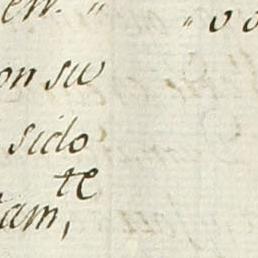 en. " " 0 0
on su
sido
te
tam,